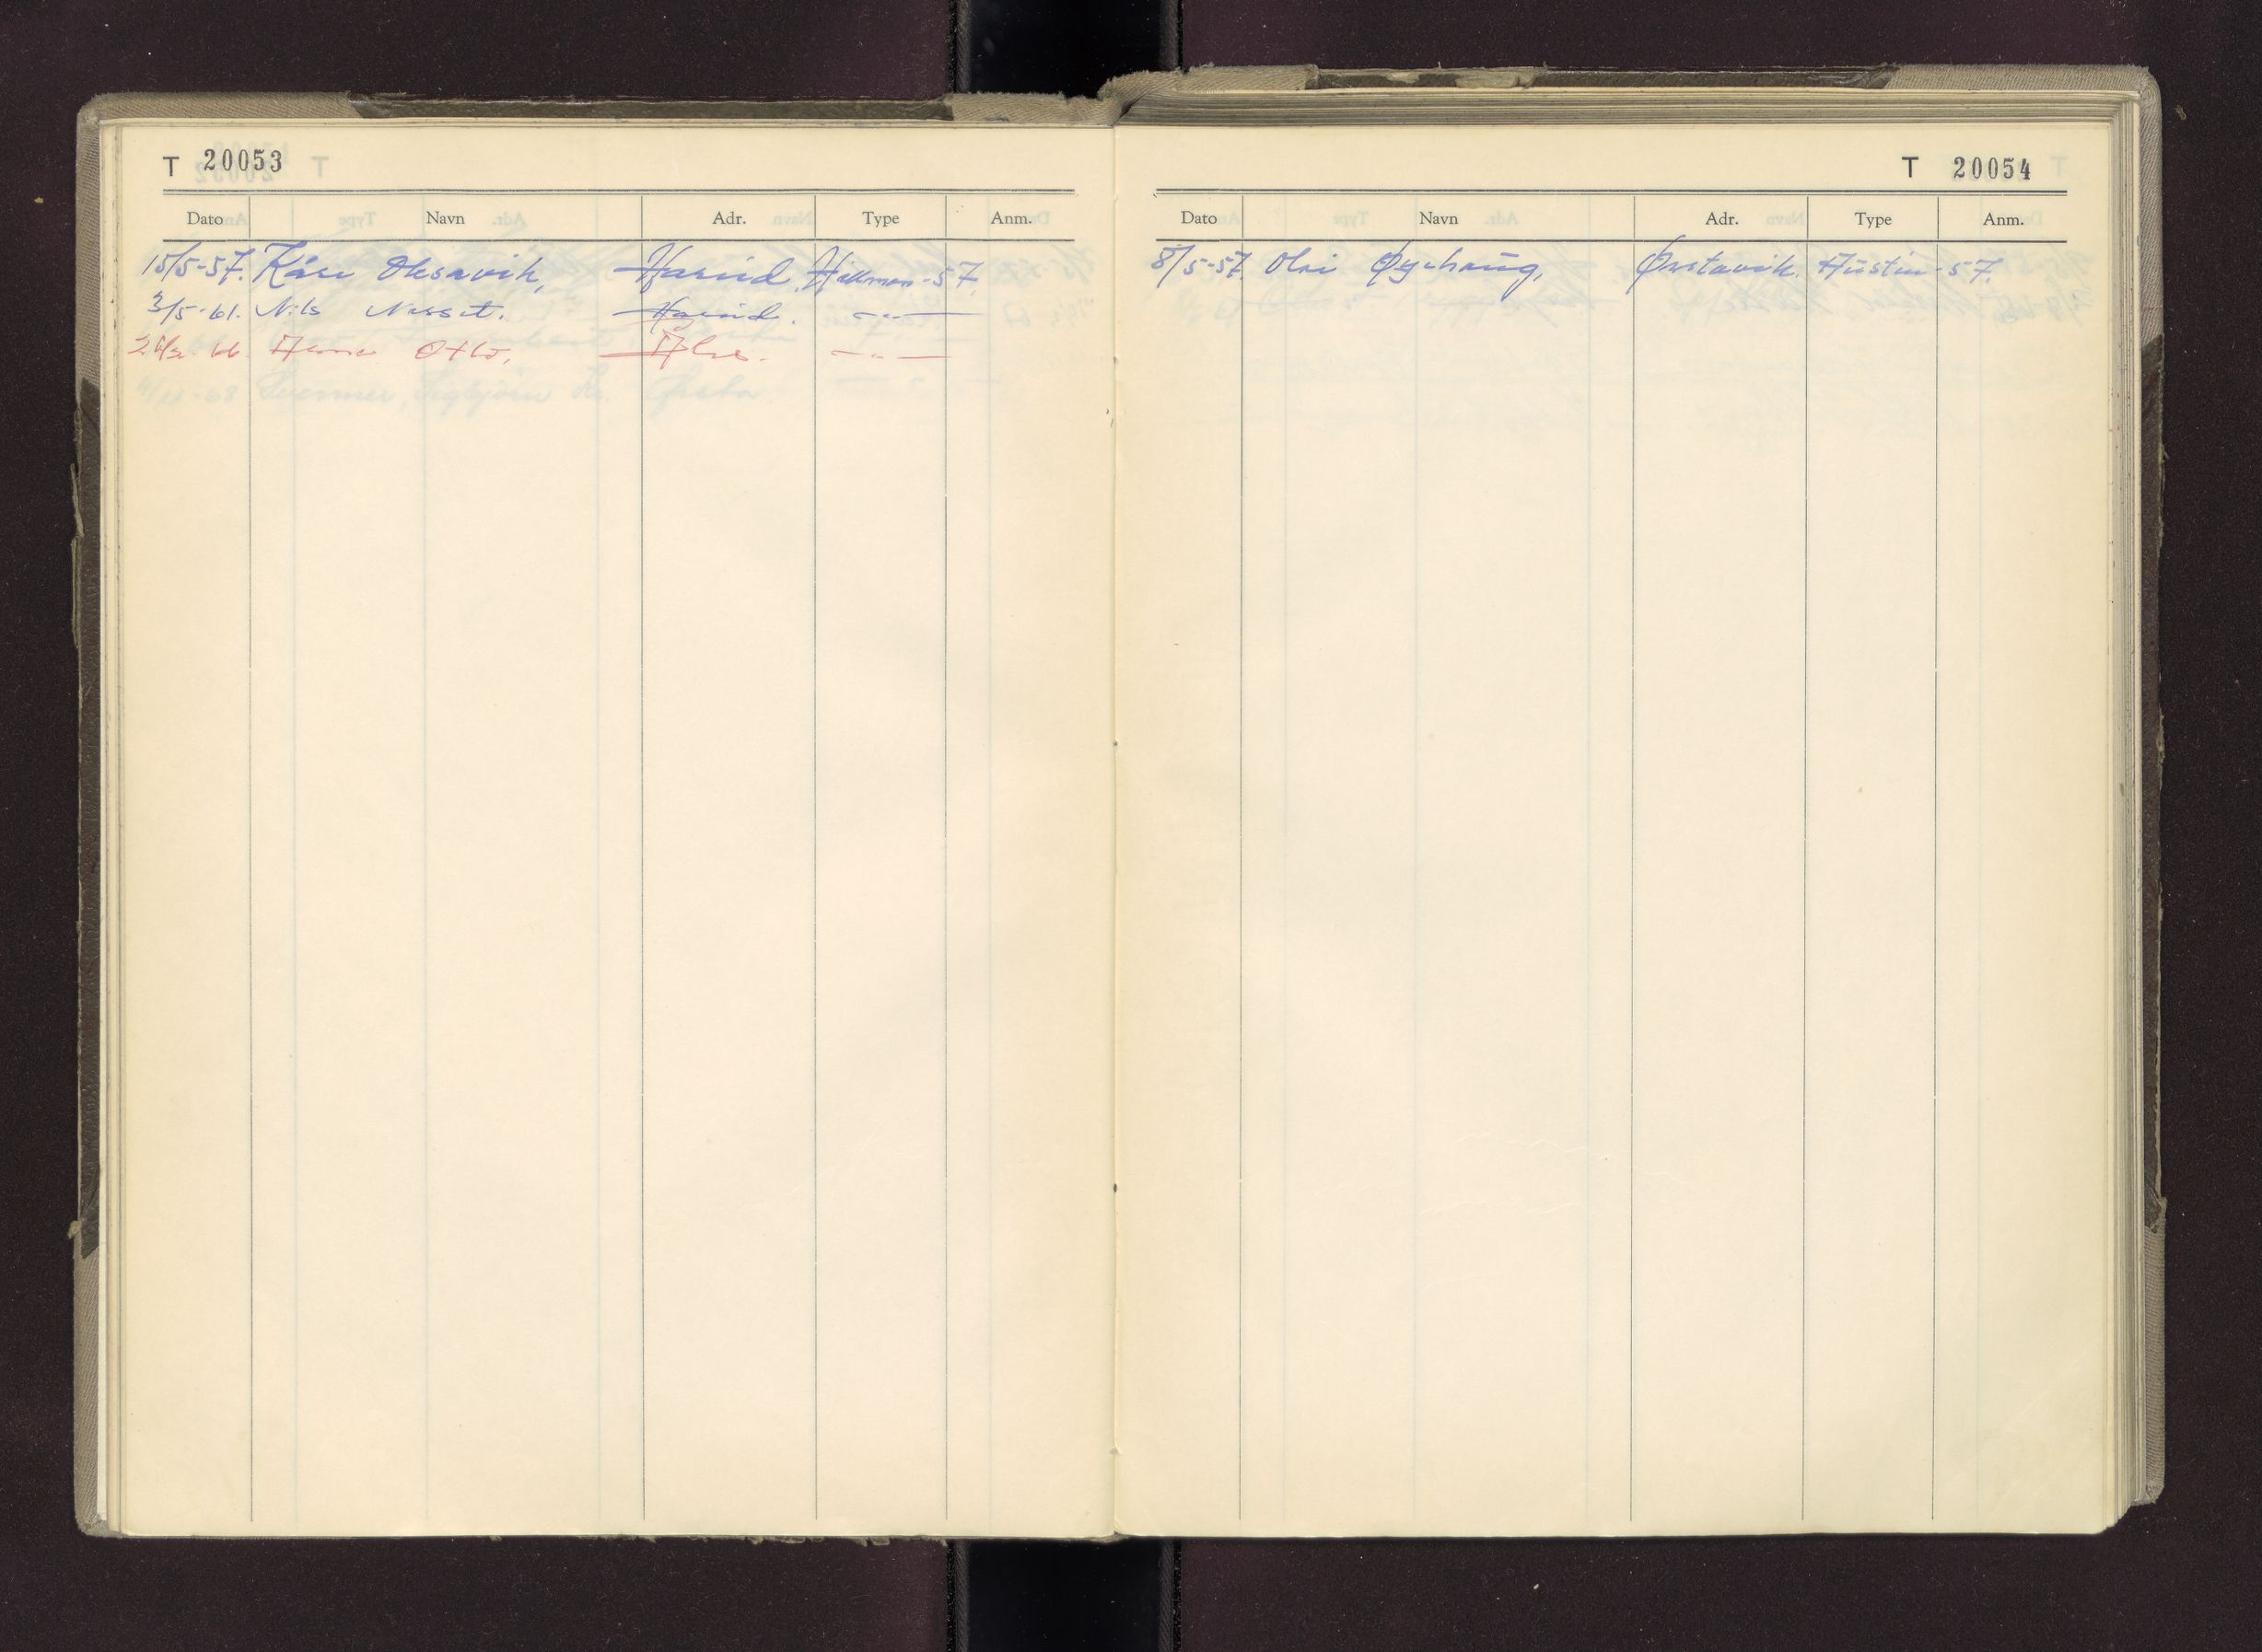 T 20053
Dato Navn Adr. Type Anm.
15/5-57. Kåre Oksavik, Hareid. Hillman-57.
3/5-61. Nils Nesset. Hareid. -"-
Otto, -"-
4/11-68 Sigbjørn Kr. Ørsta -"-
T 20054
Dato Navn Adr. Type Anm.
8/5-57. Olai Øyehaug, Ørstavik. Austin-57.